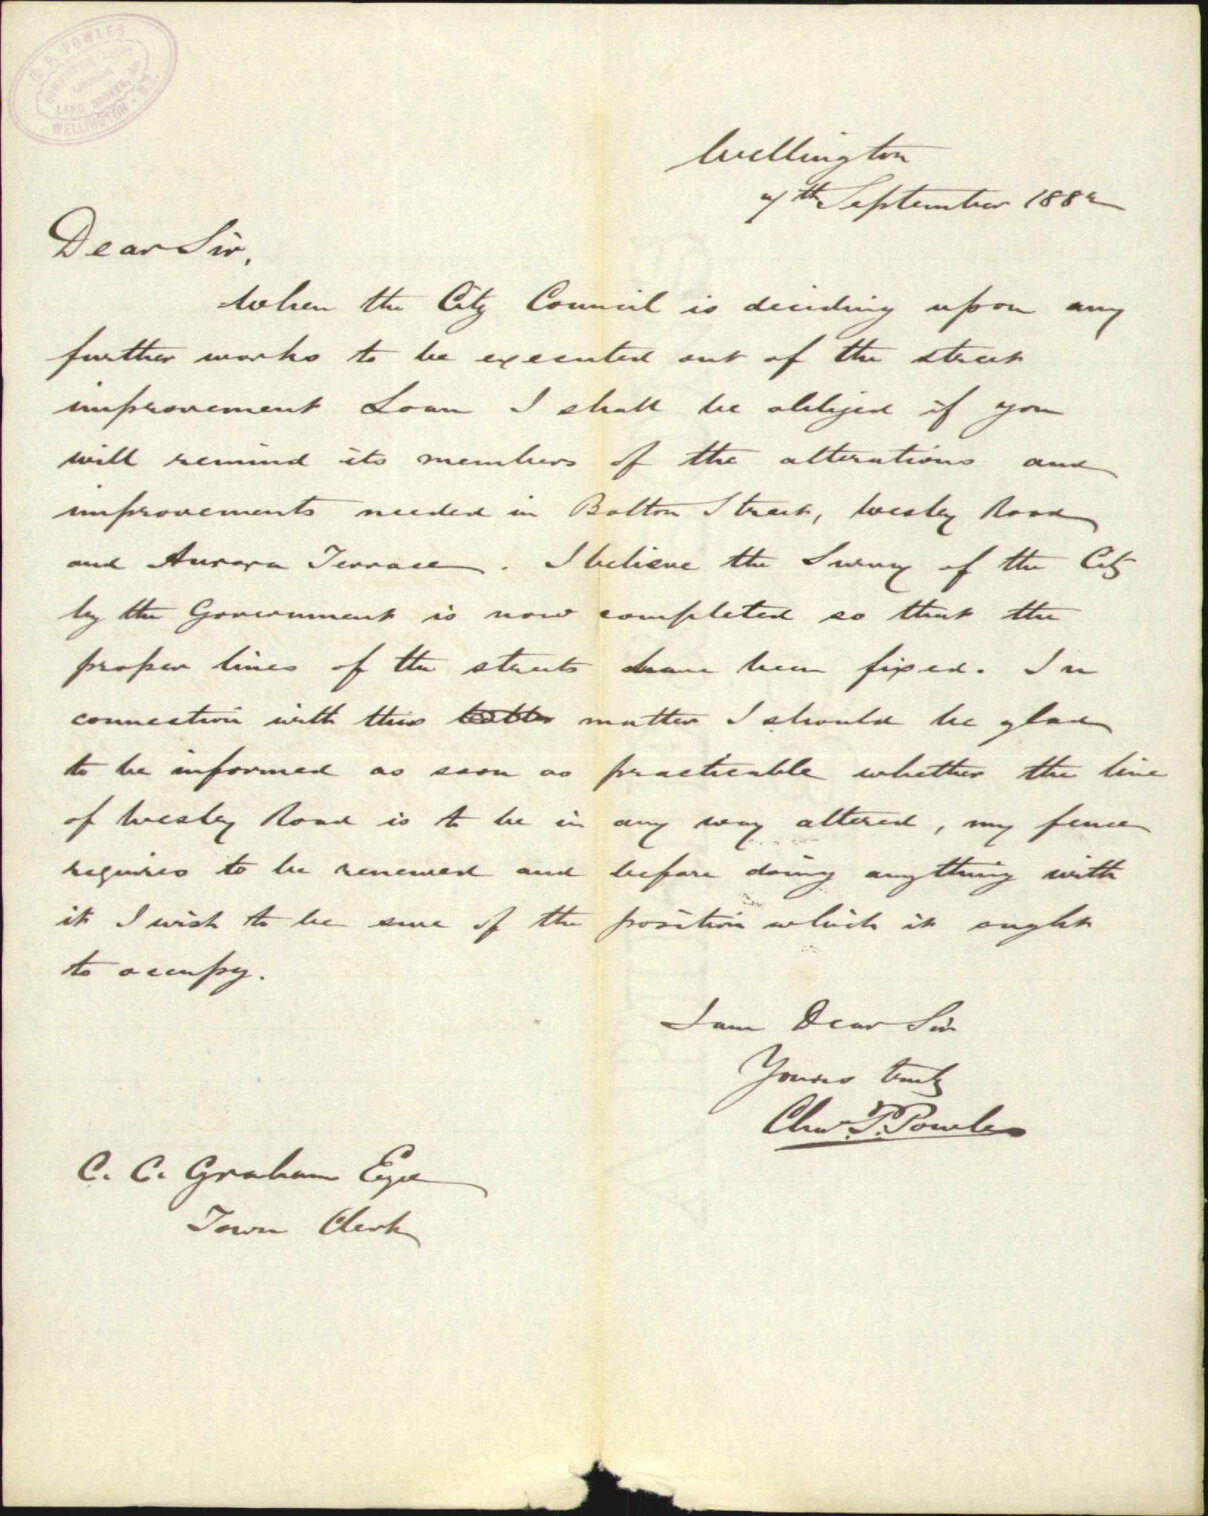 C. P. POWLES
LAND BROKER, &c
WELLINGTON. N.Z.
Wellington
7th September 1882
Dear Sir,
When the City Council is deciding upon any
further works to be executed out of the street
improvement Loan I shall be obliged if you
will remind its members of the alterations and
improvements needed in Bolton Street, Wesley Road
and Aurora Terrace. I believe the Survey of the City
by the Government is now completed so that the
proper lines of the streets have been fixed. In
connection with this matter I should be glad
to be informed as soon as practicable whether the line
of Wesley Road is to be in any way altered, my fence
requires to be renewed and before doing anything with
it I wish to be sure of the position which it ought
to occupy.
I am Dear Sir
Yours truly
Chas. P. Powles
C. C. Graham Esqre
Town Clerk